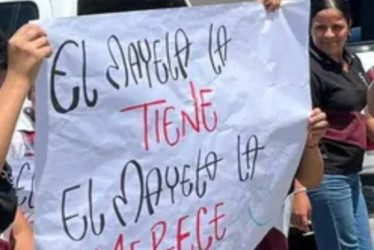 EL MAYELA LA
TIENE
EL MAYELA LA
MERECE